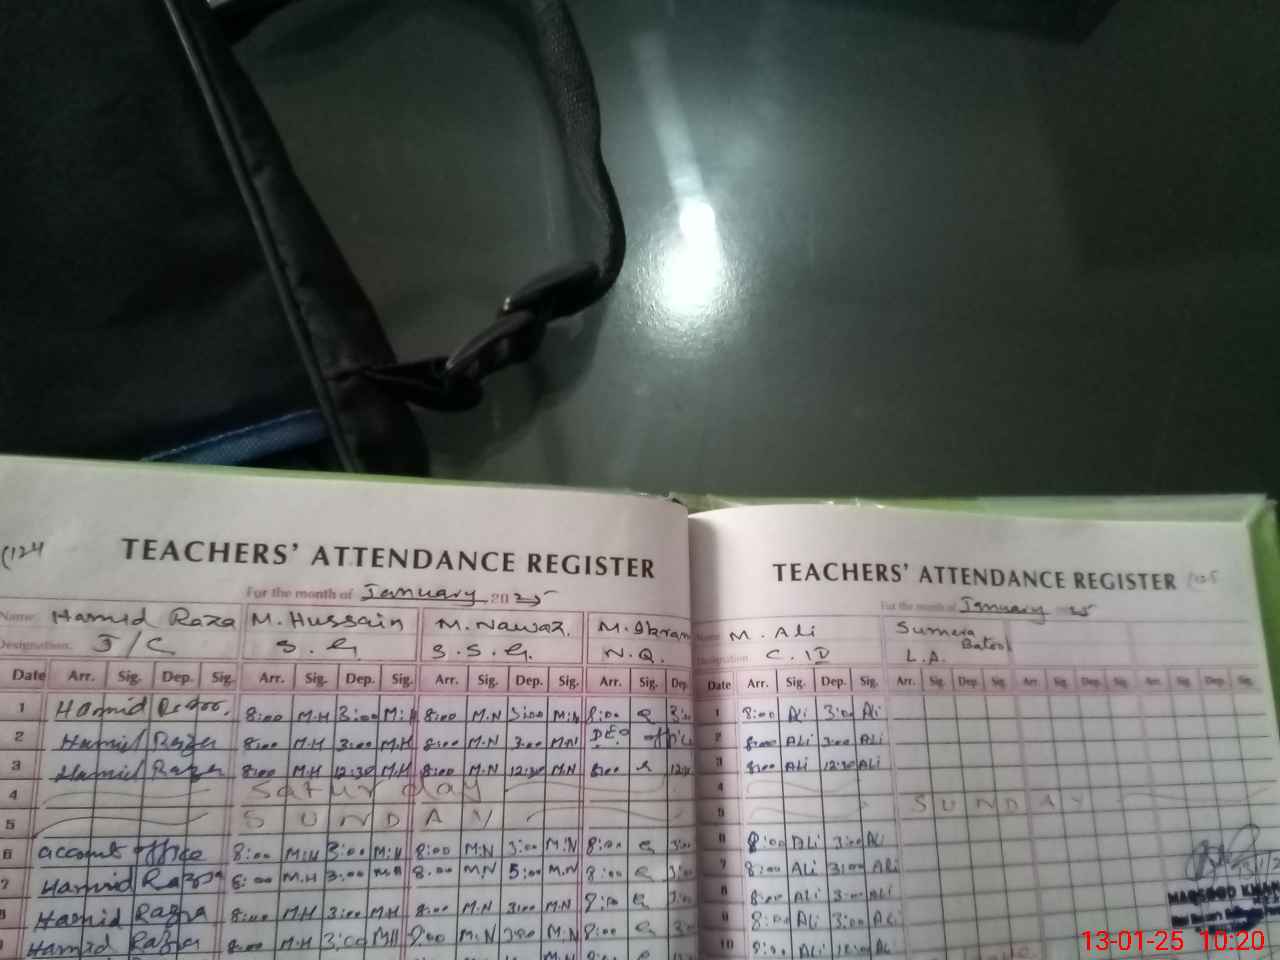 TEACHERS' ATTENDANCE REGISTER
For the month of January 2025
Name: Hamid Raza M. Hussain M. Nawaz. M. Ikram
Designation: J/C S.G. S.S.G. N.Q.
Date Arr. Sig. Dep. Sig. Arr. Sig. Dep. Sig. Arr. Sig. Dep. Sig. Arr. Sig. Dep.
1 Hamid 8:00 M.H 3:00 M.H 8:00 M.N 3:00 M.N 8:00
2 Hamid 8:00 M.H 3:00 M.H 8:00 M.N 3:00 M.N DEO office
3 Hamid Raza 8:00 M.H 12:30 M.H 8:00 M.N 12:30 M.N 8:00
4 Saturday
5 S U N D A Y
6 account office 8:00 M.H 3:00 M.H 8:00 M.N 3:00 M.N 8:00
7 Hamid Raza 8:00 M.H 3:00 M.H 8:00 M.N 5:00 M.N 8:00
8 Hamid Raza 8:00 M.H 3:00 M.H 8:00 M.N 3:00 M.N 8:00
9 Hamid Raza 8:00 M.H 3:00 M.H 8:00 M.N 3:00 M.N 8:00
TEACHERS' ATTENDANCE REGISTER
For the month of January 2025
Name M. Ali Sumera Batool
Designation C. IV L.A.
Date Arr. Sig. Dep. Sig. Arr. Sig. Dep. Sig. Arr. Sig. Dep. Sig. Arr. Sig. Dep. Sig.
1 8:00 Ali 3:00 Ali
2 8:00 ALi 3:00 ALi
3 8:00 ALi 12:30 ALi
4
5 S U N D A Y
6 8:00 ALi 3:00 ALi
7 8:00 ALi 3:00 ALi
8 8:00 ALi 3:00 ALi
9 8:00 Ali 3:00 ALi
10 8:00 Ali
MAQSOOD KHAN
13-01-25 10:20